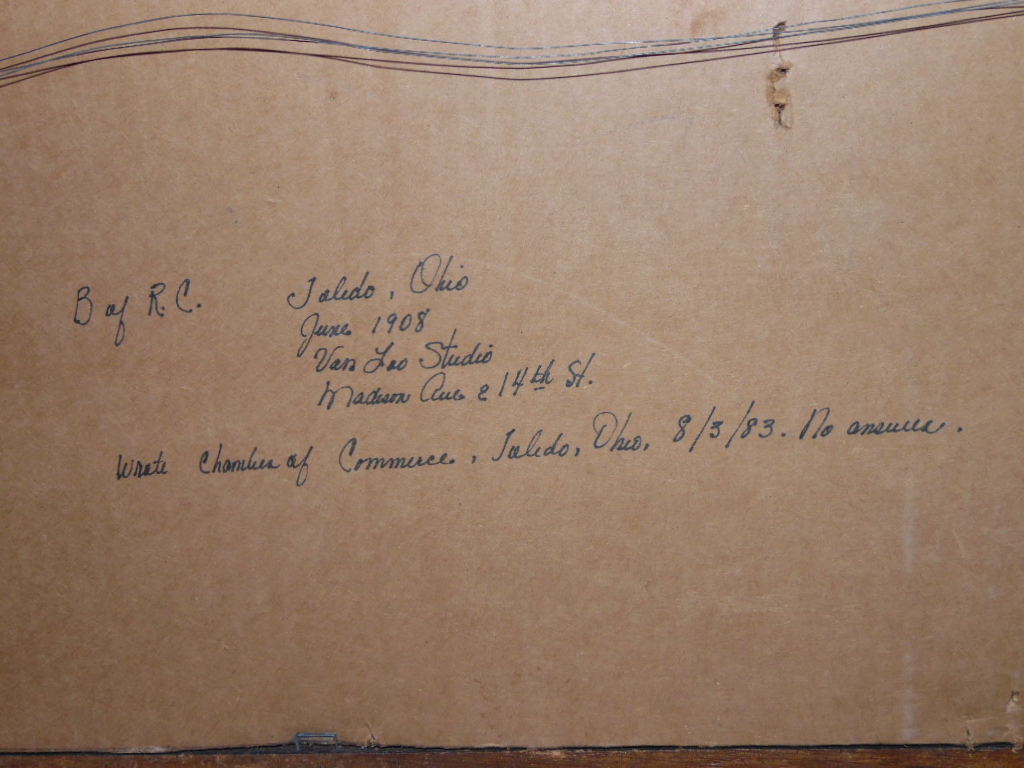 B of R.C. Toledo, Ohio
June 1908
Van Loo Studio
Madison Ave & 14th St.
Wrote Chamber of Commerce, Toledo, Ohio, 8/3/83. No answer.